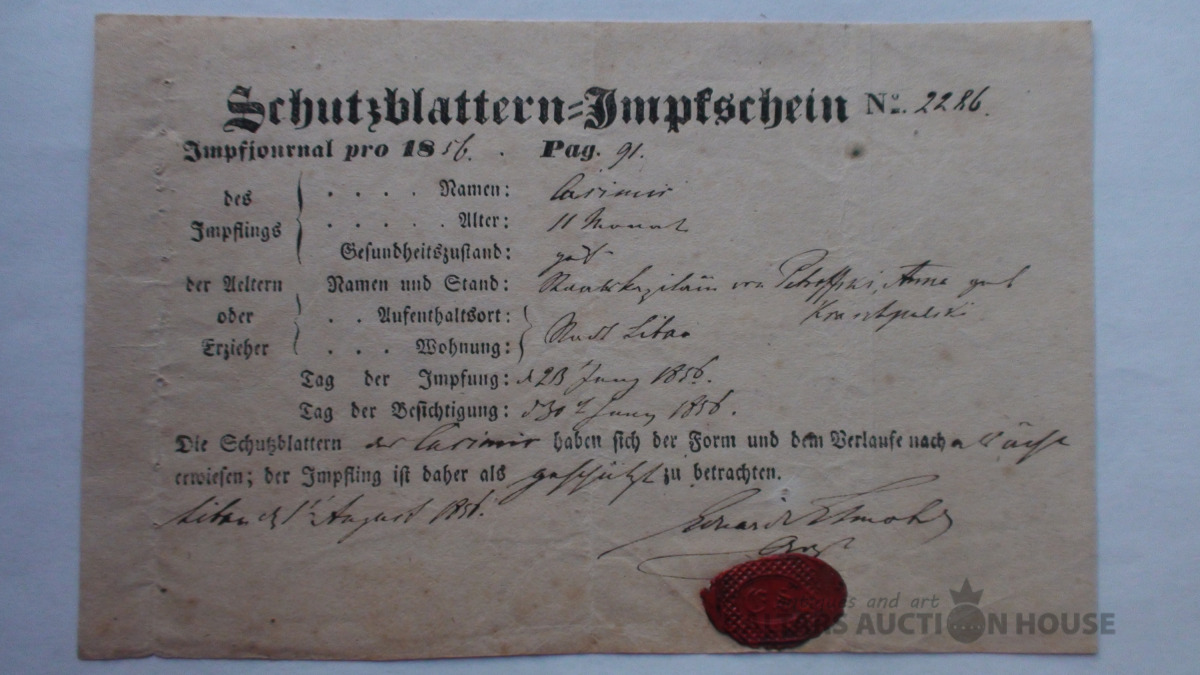 Schutzblattern=Impfschein No. 2286.
Impfjournal pro 1856. Pag. 91.
des Impflings
. . . . Namen: Casimir
. . . . . Alter: 11 Monat
Gesundheitszustand: gut
der Aeltern oder Erzieher
Namen und Stand: von Anna
. . Aufenthaltsort:
. . . Wohnung: Stadt Libau
Tag der Impfung: d 23 Juny 1856.
Tag der Besichtigung: d 30 Juny 1856.
Die Schutzblattern des Casimir haben sich der Form und dem Verlaufe nach als ächt
erwiesen; der Impfling ist daher als geschützt zu betrachten.
Libau d 1 August 1856.
Eduard
Arzt
antiques and art
AUCTION HOUSE